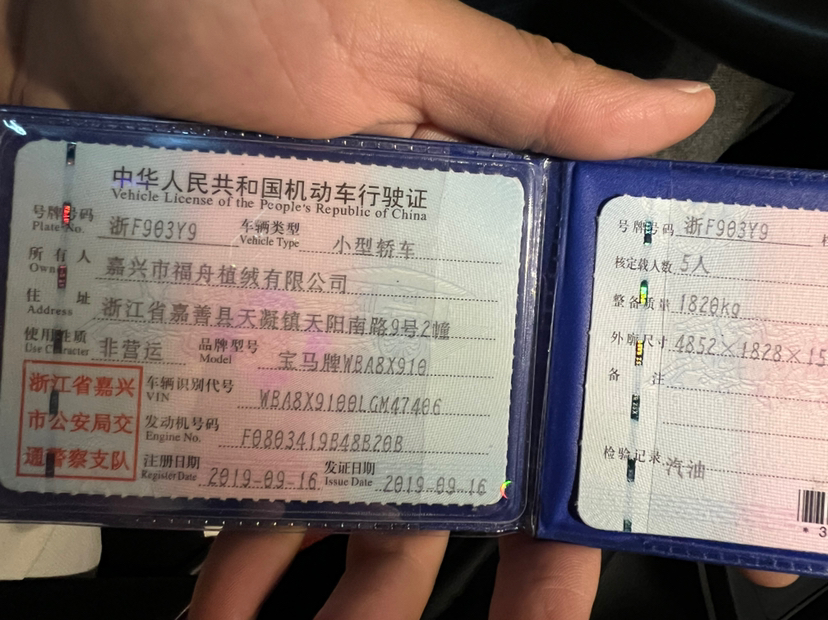 中华人民共和国机动车行驶证
Vehicle License of the People's Republic of China
号牌号码 浙F903Y9 车辆类型 小型轿车
Plate No. Vehicle Type
所有人 嘉兴市福舟植绒有限公司
Owner
住址 浙江省嘉善县天凝镇天阳南路9号2幢
Address
使用性质 非营运 品牌型号 宝马牌WBA8X910
Use Character Model
浙江省嘉兴
市公安局交
通警察支队
车辆识别代号 WBA8X9100LGM47406
VIN
发动机号码 F0803419B48B20B
Engine No.
注册日期 2019-09-16 发证日期 2019-09-16
Register Date Issue Date
号牌号码 浙F903Y9
核定载人数 5人
整备质量 1820kg
外廓尺寸 4852×1828×15
备注
检验记录 汽油
* 3